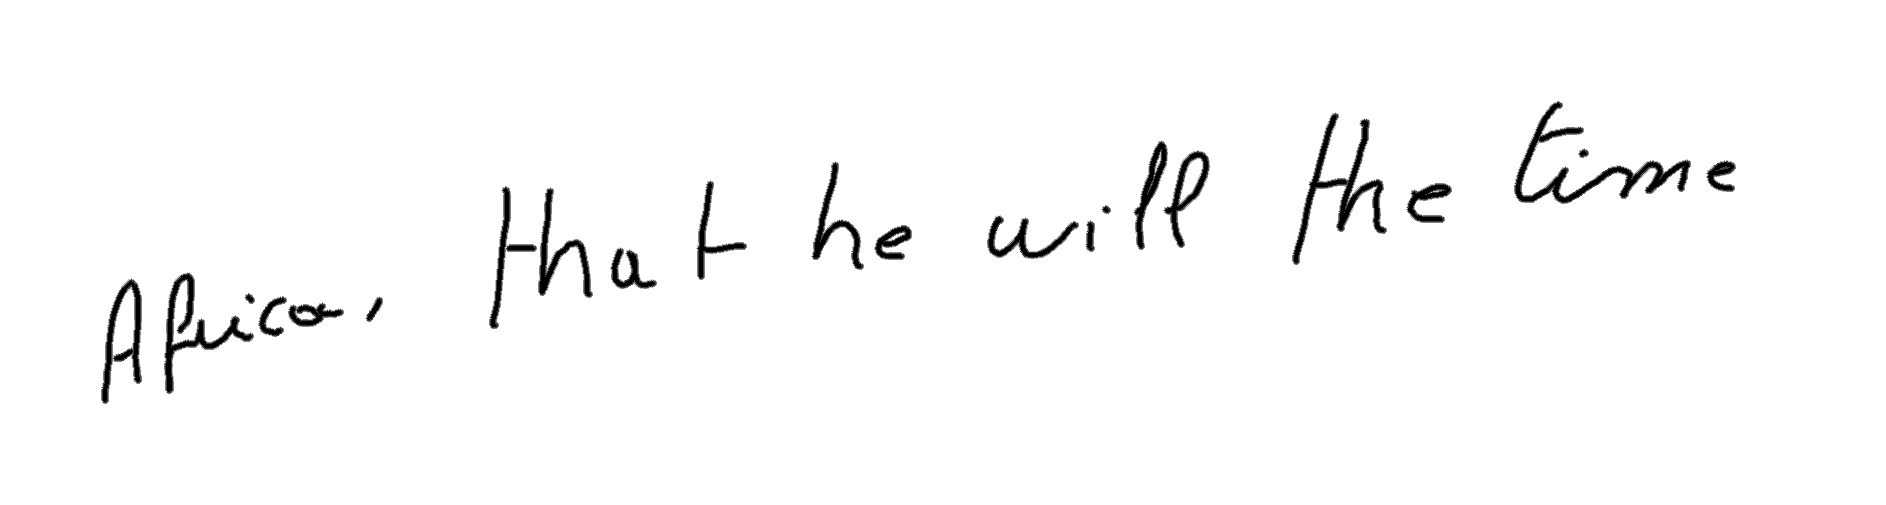 Africa, that he will the time